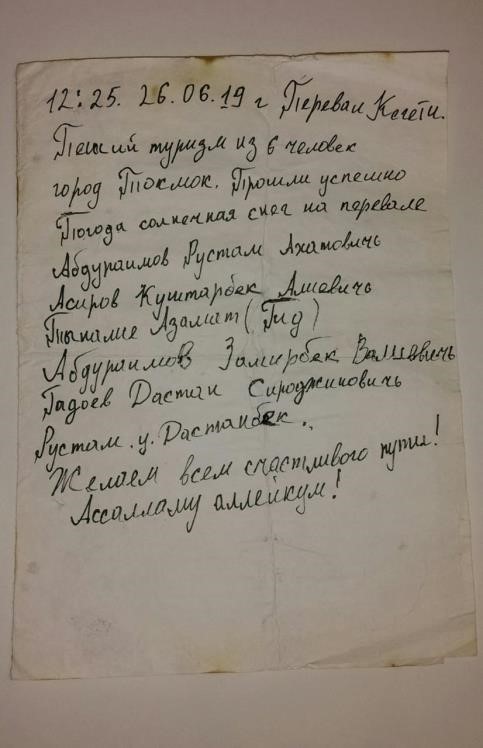 12:25. 26.06.19 г Перевал Кегети.
Пеший туризм из 6 человек
город Токмок. Прошли успешно
Погода солнечная снег на перевале
Абдураимов Рустам Ахатовичь
Асиров Куштарбек Алиевичь
Азамат (Гид)
Абдураимов Замирбек
Гадоев Дастан Сироджиновичь
Рустам.у.Дастанбек..
Желаем всем счастливого пути!
Ассалламу аллейкум!